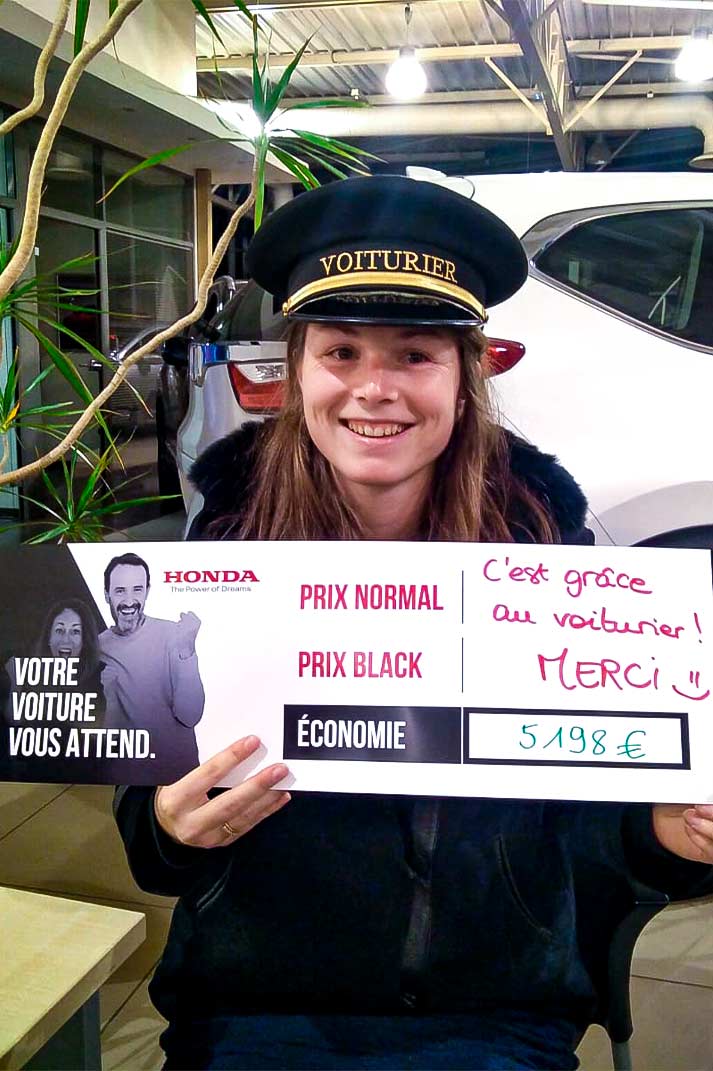 VOITURIER
HONDA
The Power of Dreams
VOTRE
VOITURE
VOUS ATTEND.
PRIX NORMAL
C'est grâce
au voiturier !
PRIX BLACK
MERCi =)
ÉCONOMIE
5198 €